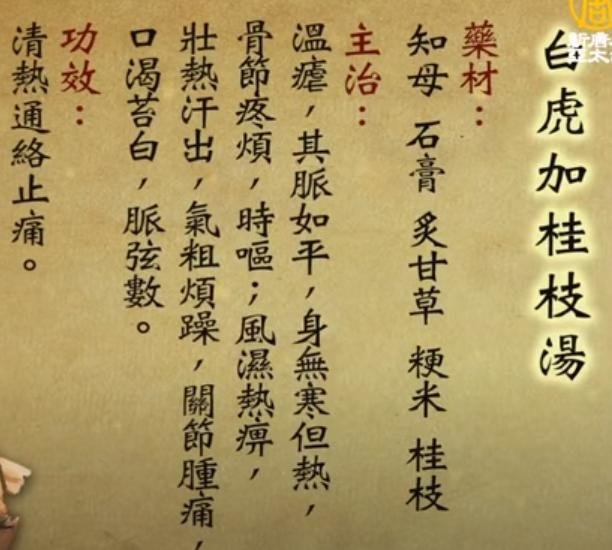 白虎加桂枝湯
藥材：
知母 石膏 炙甘草 粳米 桂枝
主治：
溫瘧，其脈如平，身無寒但熱，
骨節疼煩，時嘔；風濕熱痹，
壯熱汗出，氣粗煩躁，關節腫痛，
口渴苔白，脈弦數。
功效：
清熱通絡止痛。